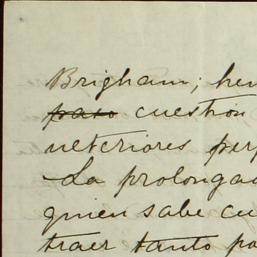 Brigham; hem
paso cuestion
ulteriores per
La prolonga
quien sabe cu
traer tanto pa